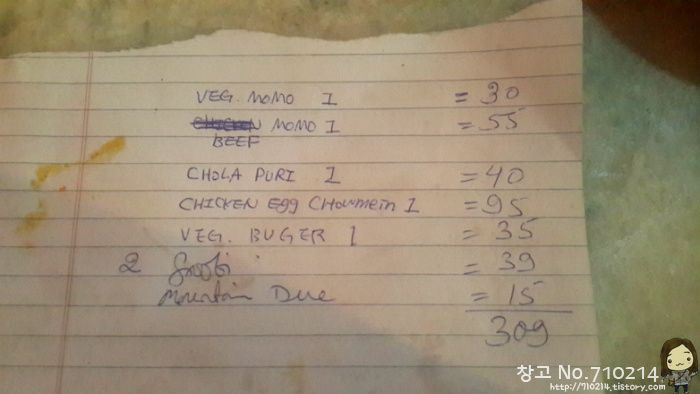 VEG. MOMO 1 = 30
CHICKEN MOMO 1 = 55
BEEF
CHOLA PURI 1 = 40
CHICKEN EGG CHOWMEIN 1 = 95
VEG. BUGER 1 = 35
2 = 39
Mountain Due = 15
309
창고 No.710214
http://710214.tistory.com/